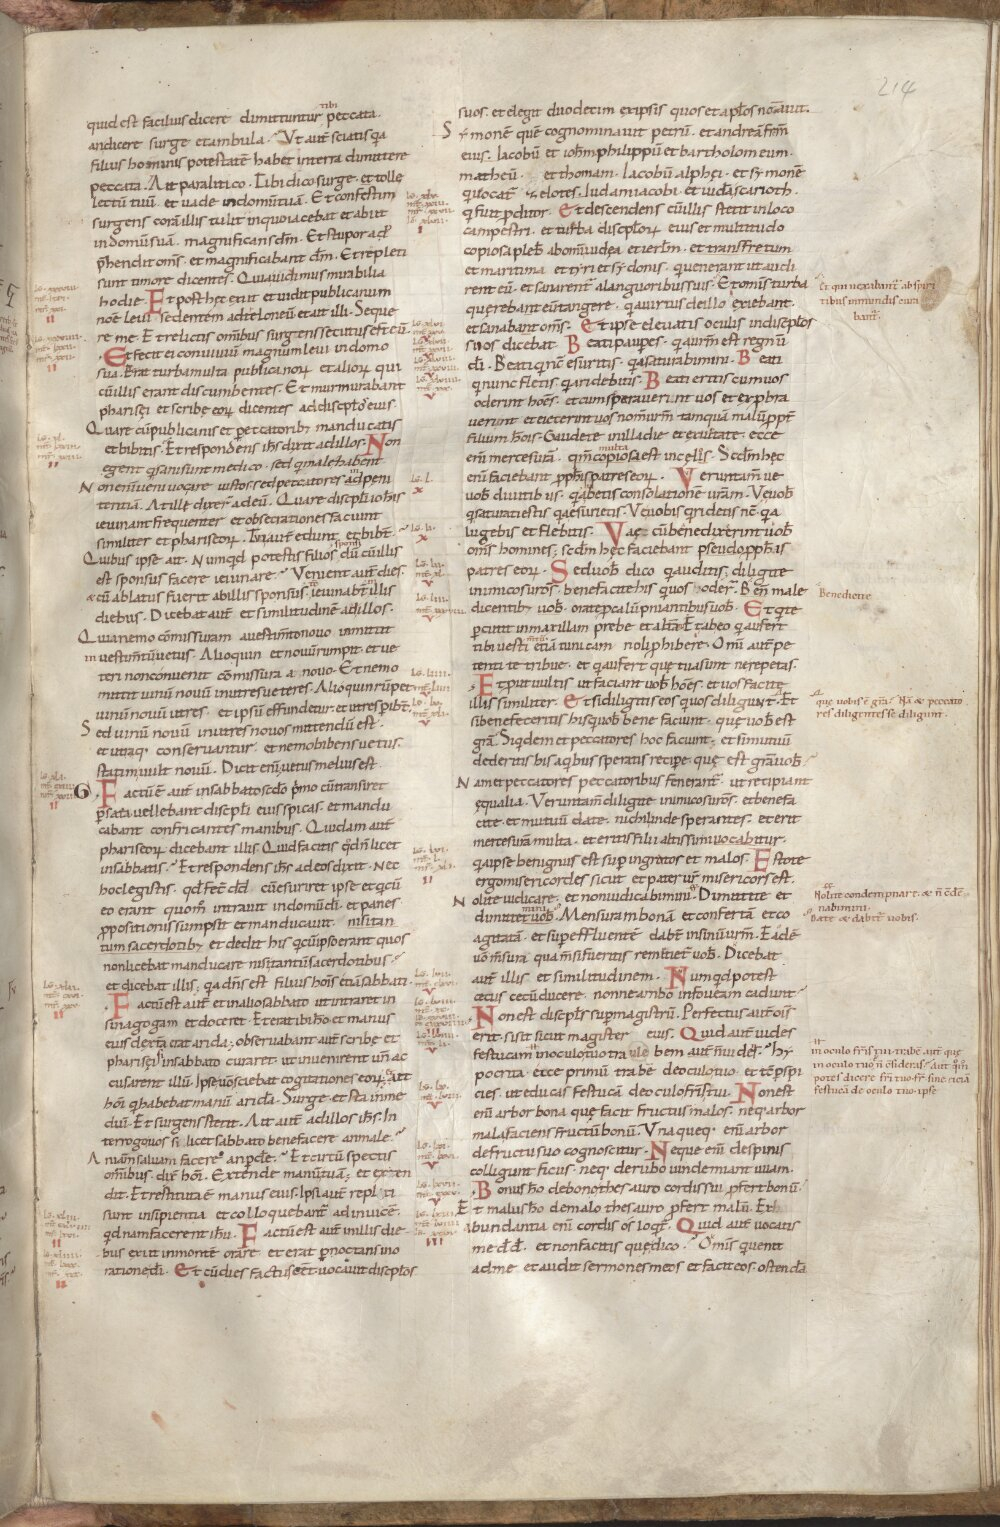 214
tibi
quid est facilius dicere dimittuntur peccata.
an dicere surge et ambula. Vt aut̄ sciatis q̄a
filius hominis potestatē habet in terra dimittere
peccata. Ait paralitico. Tibi dico surge. et tolle
lectū tuū. et uade in domūtuam. Et confestim
surgens corā illis tulit in quo iacebat et abiit
in domū suā. magnificans dm̄. Et stupor
p̄hendit om̄s. et magnificabant dm̄. Et repleti
sunt timore dicentes. Quia uidimus mirabilia
hodie. Et post hęc exiit et uidit publicanum
noē leui. sedentem ad teloneū et ait illi. Seque
re me. Et relictis omībus surgens secutus est eū.
Et fecit ei conuiuiū magnum leui in domo
sua. Erat turba multa publicanorꝝ et aliorꝝ qui
cū illis erant discumbentes. Et murmurabant
pharisęi et scribę eorꝝ dicentes ad discipl̄os eius.
Quare cū publicanis et peccatorib; manducatis
et bibitis. Et respondens ih̄s dixit ad illos. Non
egent q̄ sani sunt medico. sed q̄ male habent
Non enī ueni uocare iustos sed peccatores ad peni
tentiā. At illi dixer̄ ad eū. Quare discipl̄i ioh̄is
ieiunant frequenter et obsecrationes faciunt
similiter et phariseorꝝ. Tui aut̄ edunt et bibt̄.
sponsi
Quibus ipse ait. Numq̄d potestis filios dū cū illis
est sponsus facere ieiunare. Venient aut̄ dies.
& cū ablatus fuerit ab illis sponsus. ieiunabt̄ illis
diebus. Dicebat aut̄ et similitudinē ad illos.
Quia nemo cōmissuram a uestim̄to nouo inmittit
in uestim̄tū uetus. Alioquin et nouū rumpit. et ue
teri non conuenit cōmissura a nouo. Et nemo
mittit uinū nouū in utres ueteres. Alioquin rūpet
uinū nouū utres. et ipsū effundetur. et utres pibt̄.
Sed uinū nouū in utres nouos mittendū est.
et utraq; conseruantur. et nemo bibens uetus.
statim uult nouū. Dicit enī uetus melius est.
Factū ē aut̄ in sabbato scdo p̄mo cū transiret
p̄ sata uellebant discipl̄i eius spicas. et mandu
cabant confricantes manibus. Quidam aut̄
phariseorꝝ dicebant illis. Quid facitis q̄d n̄ licet
in sabbatis. Et respondens ih̄s ad eos dixit. Nec
hoc legistis. qd̄ fec̄ dd̄. cū esuriret ipse et q̄ cū
eo erant quom̄ intrauit in domū dī. et panes
p̄positionis sumpsit et manducauit. nisi tan
tum sacerdotib; et dedit his q̄ cū ipso erant quos
non licebat manducare nisi tantū sacerdotibus.
et dicebat illis; q̄a dn̄s est filius hoīs etiā sabbati.
Factū est aut̄ et in alio sabbato ut intraret in
sinagogam et doceret. Et erat ibi hō et manus
eius dextra erat arida; obseruabant aut̄ scribę et
pharisęi si in sabbato curaret. ut inuenirent uñ ac
cusarent illū. Ipse uō sciebat cogitationes eorꝝ. & ait
hōi q̄ habebat manū aridā. Surge et sta in me
diū. Et surgens stetit. Ait aut̄ ad illos ih̄s. In
terrogo uos si licet sabbato bene facere an male.
Animam saluam facere. an p̄dere. Et circū spectis
omībus. dix̄ hōi. Extende manū tuā; et exten
dit. Et restituta ē manus eius. Ipsi aut̄ repleti
sunt insipientia et colloquebant̄ ad inuicē.
q̄d nam facerent ih̄u. Factū est aut̄ in illis die
bus exiit in montē orare et erat p̄noctans in o
ratione dī. Et cū dies factus eēt. uocauit discipl̄os
suos. et elegit duodecim ex ipsis quos et apl̄os noīauit.
Symonē quē cognominauit petrū. et andreā frm̄
eius. Iacobū et ioh̄m philippū et bartholomeum.
matheū et thomam. Iacobū alphei. et symonē
q̄ uocat̄ zelotes. Iudam iacobi. et iudā scarioth.
q̄ fuit p̄ditor. Et descendens cū illis stetit in loco
campestri. et turba discipl̄orꝝ eius et multitudo
copiosa plebis ab om̄i iudęa et ierl̄m. et transfretum
et maritima et tyri et sydonis. qui uenerant ut audi
rent eū. et sanarent̄ a languoribus suis. Et om̄is turba
querebant eū tangere. q̄a uirtus de illo exiebant.
et sanabat om̄s. Et ipse eleuatis oculis in discipl̄os
suos dicebat. Beati paup̄es. q̄a ur̄m est regnū
dī. Beati q̄ nc̄ esuritis. q̄a saturabimini. Beati
q̄ nunc fletis. q̄a ridebitis. Beati eritis cum uos
oderint hōes. et cum sperauerint uos et exp̄bra
uerint et eiecerint uos nom̄ ur̄m tamquā malū ppt̄
filium hoīs. Gaudete in illa die et exultate. ecce
multa
enī merces ur̄a. qm̄ copiosa est in cęlis. Scdm hęc
enī faciebant pphīs patres eorꝝ. Veruntam̄ uę
uob̄ diuitib; us. q̄a habetis consolationē uram̄. Vę uob̄
q̄ saturati estis q̄a esurietis. Vę uobis q̄ ridetis nc̄. q̄a
lugebis et flebitis. Vae cū benedixerint uob̄
om̄s homines; scdm hęc faciebant pseudopph̄is
patres eorꝝ. Sed uob̄ dico q̄ auditis; diligite
inimicos ur̄os. benefacite his q̄ uos oder̄. Ben male
dicentib; uob̄. orate p calūpniantibus uob̄. Et q̄ te
p̄cutit in maxillam prebe et alt̄ā. Et ab eo q̄ aufert
tibi uestim̄tū etiā tunicam noli phibere. Omī aut̄ pe
tenti te tribue. et q̄ aufert quę tua sunt ne repetas.
Et put uultis ut faciant uob̄ hōes. et uos facite
illis similiter. Et si diligitis eos q̄ uos diligunt. Et
si benefeceritis his q̄ uob̄ bene faciunt. quę uob̄ est
gr̄a. Siqdem et peccatores hoc faciunt. et si mutuū
dederitis his a q̄bus speratis recipe. quę est gr̄a uob̄.
Nam et peccatores peccatoribus fenerant̄. ut recipiant
ęqualia. Veruntam̄ diligite inimicos ur̄os. et benefa
cite. et mutuū date. nichil inde sperantes. et erit
merces ur̄a multa. et eritis filii altissimi uocabitur.
q̄a ipse benignus est sup ingratos et malos. Estote
ergo misericordes sicut et pater ur̄ misericors est.
Nolite iudicare. et non iudicabimini. Dimittite et
dimittet̄ uob̄. Mensuram bonā et confertā et co
agitatā. et supeffluentē dabt̄ in sinū ur̄m. Eadē
uō m̄sura qua m̄si fueritis remitiet̄ uob̄. Dicebat
aut̄ illis et similitudinem. Numq̄d potest
cęcus cecū ducere. nonne ambo in foueam cadunt.
Non est discipl̄s sup magistrū. Perfectus aut̄ oīs
erit. si sit sicut magister eius. Quid aut̄ uides
festucam in oculo tuo tra bem aut̄ n̄ uides. Hy
pocrita eice primū trabē de oculo tuo. et tc̄ pspi
cies. ut educas festucā de oculo fr̄is tui. Non est
enī arbor bona quę facit fructus malos. neq; arbor
mala faciens fructū bonū. Vna queq; enī arbor
de fructu suo cognoscitur. Neque enī de spinis
colligunt ficus. neq; de rubo uindemiant uuam.
Bonus hō de bono thesauro cordis sui pfert bonū.
Et malus hō de malo thesauro pfert malū. Ex
abundantia enī cordis os loq̄t̄. Quid aut̄ uocatis
me dn̄e dn̄e. et non facitis quę dico. Omīs qui uenit
ad me. et audit sermones meos et facit eos. ostendā
Et qui uexabant̄ ab spiri
tibus inmundis cura
bant̄.
Benedicite
quę uobis ē gr̄a. Nā & peccato
res diligentes sē diligunt.
Nolite condempnare. & n̄ cōdē
nabimini.
Date & dabit̄ uobis.
in oculo fr̄is tui. trabē aut̄ quę
in oculo tuo ē n̄ c̄sideras. Aut q̄m̄
potes dicere fr̄i tuo. fr̄ sine eiciā
festucā de oculo tuo. ipse